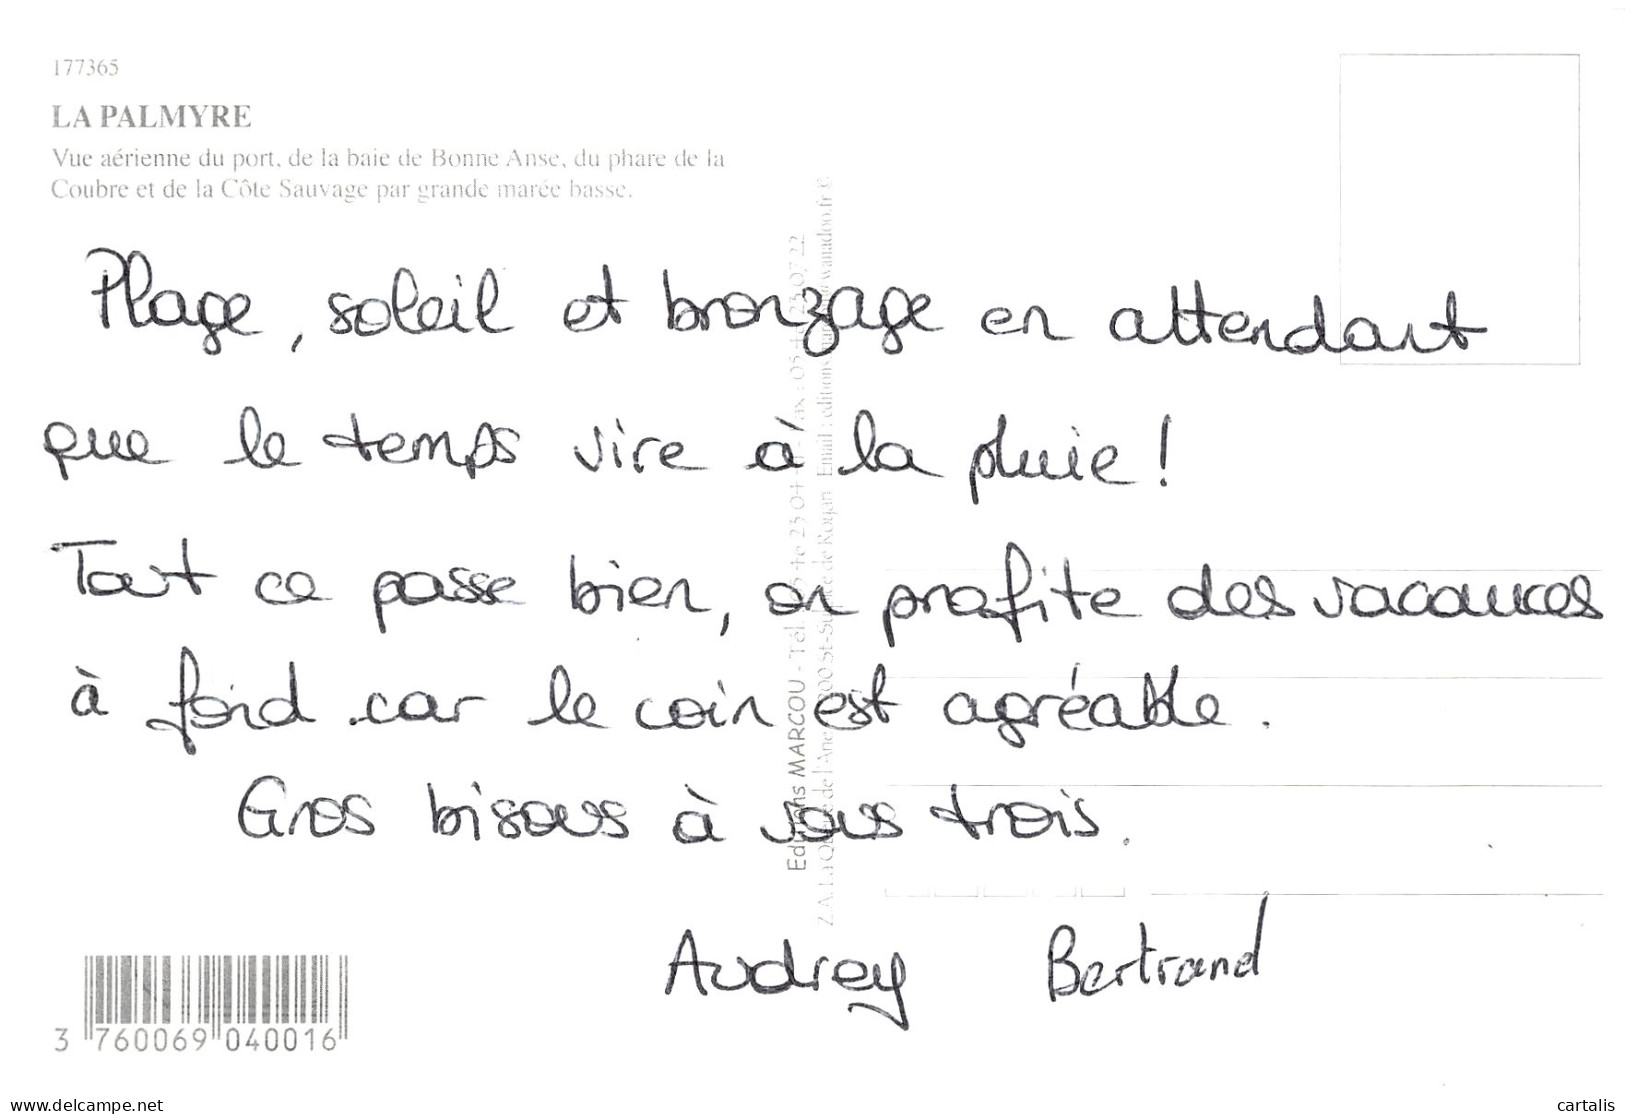 177365
LA PALMYRE
Vue aérienne du port, de la baie de Bonne Anse, du phare de la
Coubre et de la Côte Sauvage par grande marée basse.
Plage, soleil et bronzage en attendant
que le temps vire à la pluie !
Tout ce passe bien, on profite des vacances
à fond car le coin est agréable.
Gros bisous à vous trois.
Audrey Bertrand
Editions MARCOU - Tél.
Email : editions
3 760069 040016
www.delcampe.net
cartalis